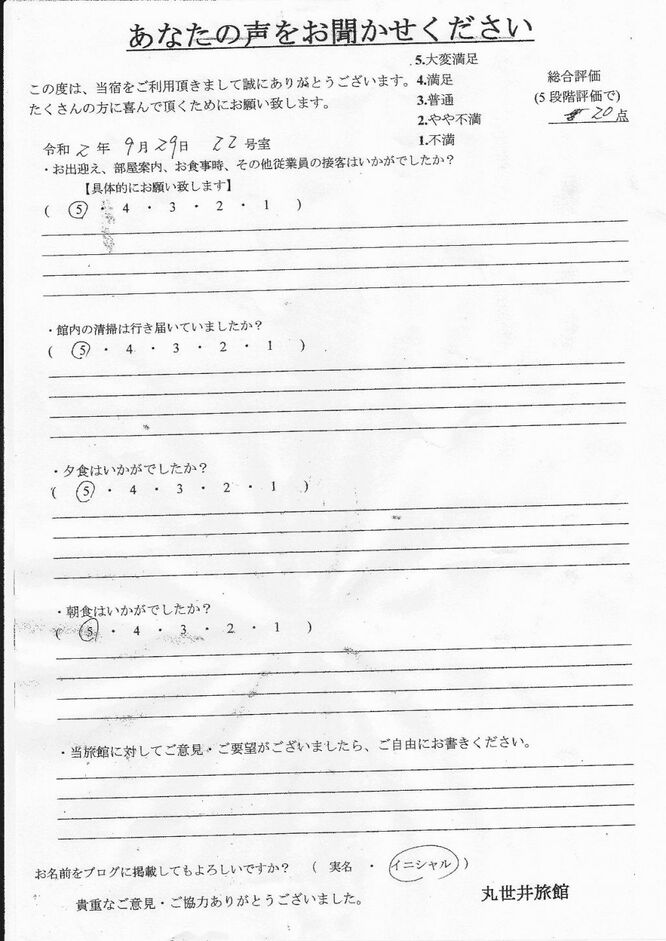 あなたの声をお聞かせください
この度は、当宿をご利用頂きまして誠にありがとうございます。
たくさんの方に喜んで頂くためにお願い致します。
5.大変満足
4.満足
3.普通
2.やや不満
1.不満
総合評価
(5段階評価で)
20点
令和2年9月29日 22号室
・お出迎え、部屋案内、お食事時、その他従業員の接客はいかがでしたか？
【具体的にお願い致します】
( 5 ・ 4 ・ 3 ・ 2 ・ 1 )
・館内の清掃は行き届いていましたか？
( 5 ・ 4 ・ 3 ・ 2 ・ 1 )
・夕食はいかがでしたか？
( 5 ・ 4 ・ 3 ・ 2 ・ 1 )
・朝食はいかがでしたか？
( 5 ・ 4 ・ 3 ・ 2 ・ 1 )
・当旅館に対してご意見・ご要望がございましたら、ご自由にお書きください。
お名前をブログに掲載してもよろしいですか？ ( 実名 ・ イニシャル )
貴重なご意見・ご協力ありがとうございました。
丸世井旅館